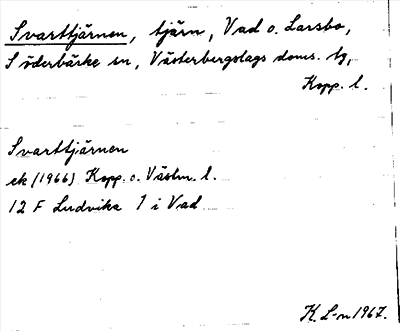 Svarttjärnen, tjärn, Vad o. Larsbo,
Söderbärke sn, Västerbergslags doms. tg,
Kopp. l.
Svarttjärnen
ek (1966) Kopp. o. Västm. l.
12 F Ludvika 1 i Vad
K. L-n 1967.